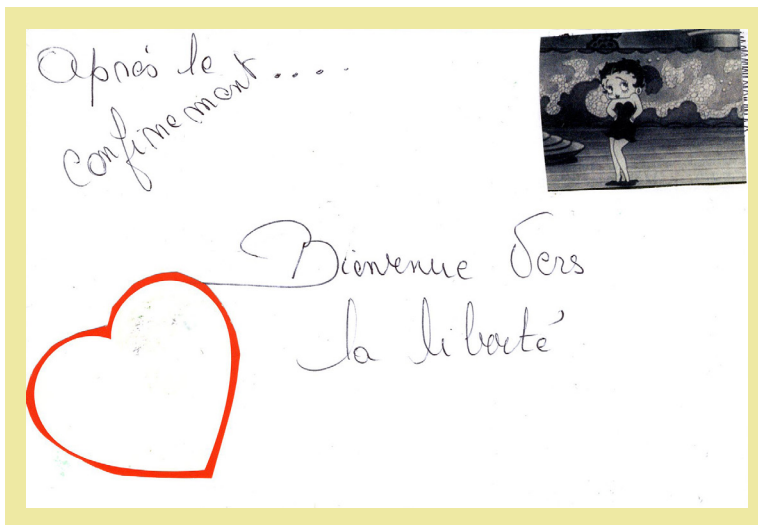 Après le
confinement....
Bienvenue Vers
la liberté